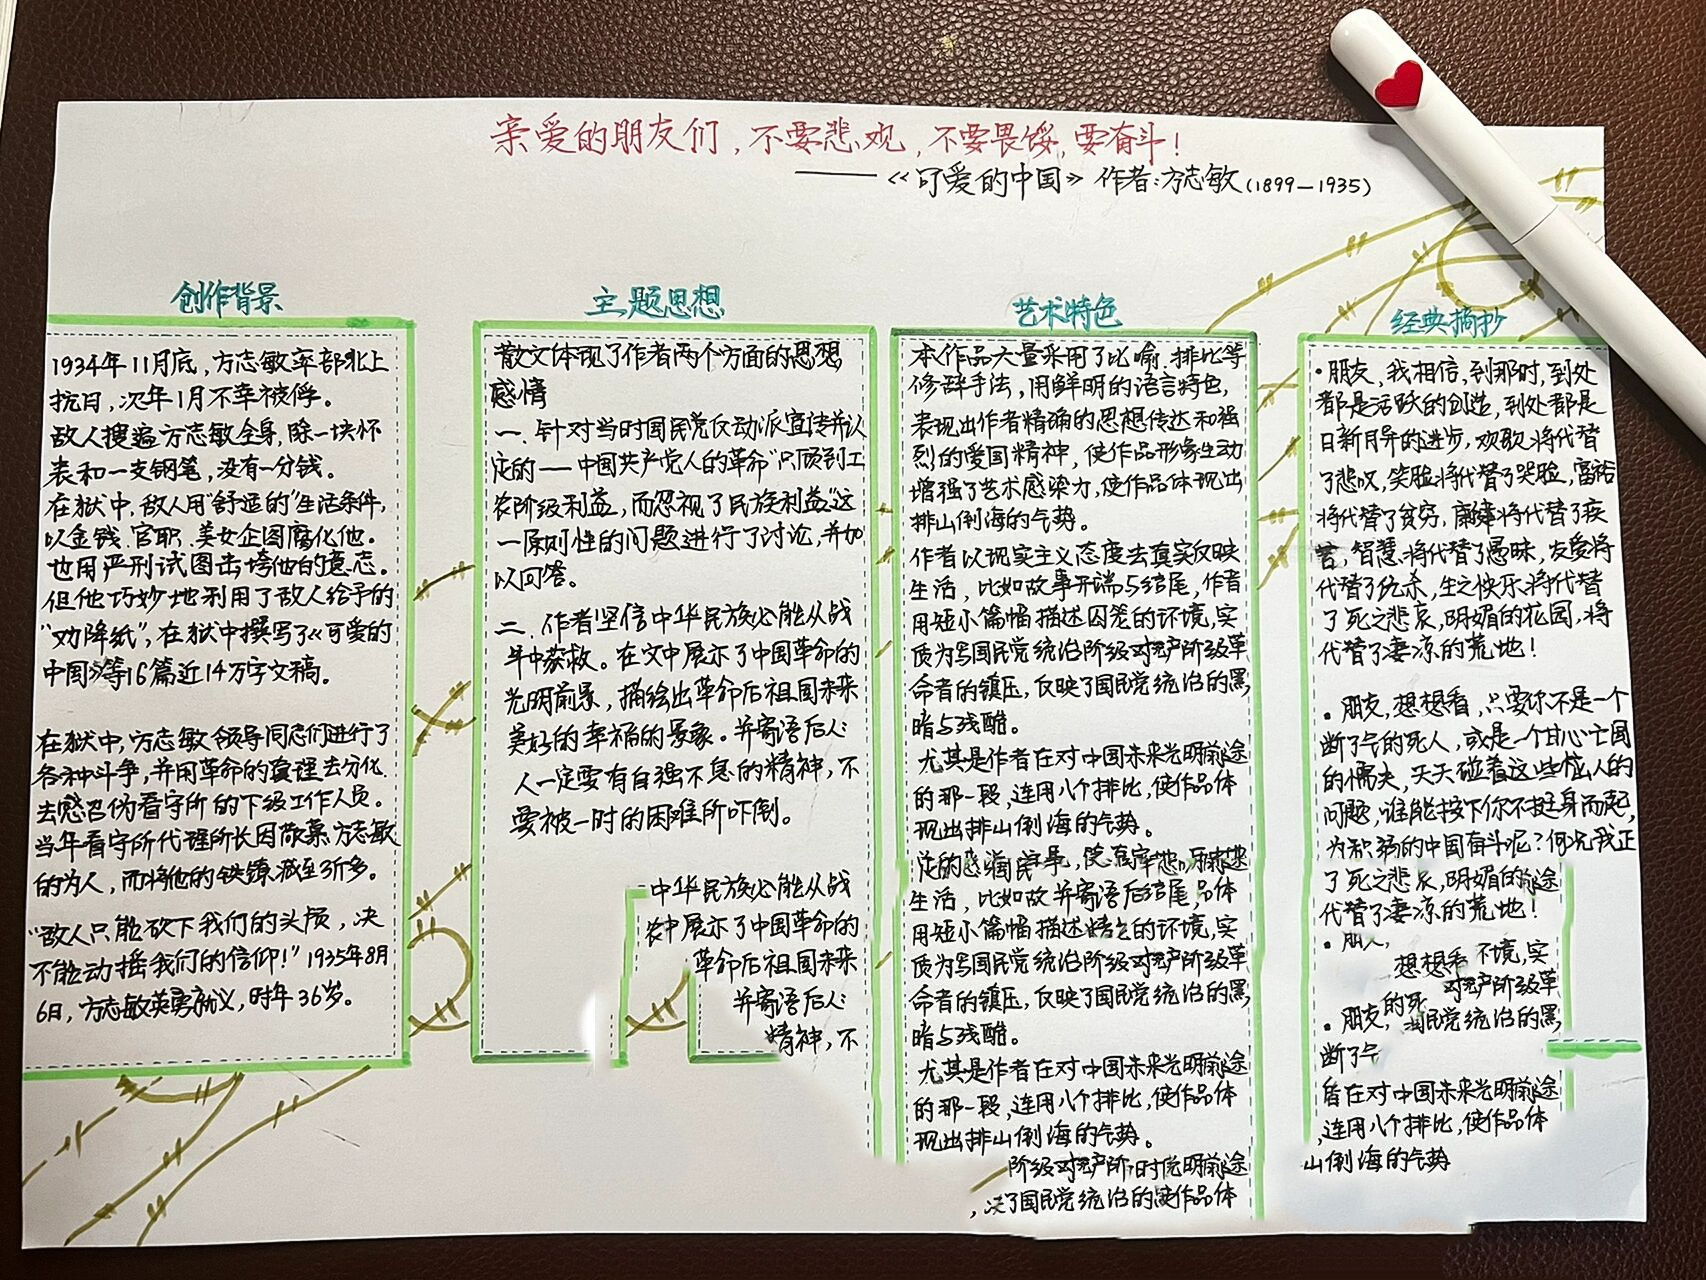 亲爱的朋友们，不要悲观，不要畏馁，要奋斗！
——《可爱的中国》作者：方志敏（1899—1935）
创作背景
1934年11月底，方志敏率部北上
抗日，次年1月不幸被俘。
敌人搜遍方志敏全身，除一块怀
表和一支钢笔，没有一分钱。
在狱中，敌人用“舒适的”生活条件，
以金钱、官职、美女企图腐化他。
也用严刑试图击垮他的意志。
但他巧妙地利用了敌人给予的
“劝降纸”，在狱中撰写了《可爱的
中国》等16篇近14万字文稿。
在狱中，方志敏领导同志们进行了
各种斗争，并用革命的真理去分化、
去感召伪看守所的下级工作人员。
当年看守所代理所长因敬慕方志敏
的为人，而将他的铁镣减至3斤多。
“敌人只能砍下我们的头颅，决
不能动摇我们的信仰！”1935年8月
6日，方志敏英勇就义，时年36岁。
主题思想
散文体现了作者两个方面的思想
感情
一、针对当时国民党反动派宣传并认
定的——中国共产党人的革命“只顾到工
农阶级利益，而忽视了民族利益”这
一原则性的问题进行了讨论，并加
以回答。
二、作者坚信中华民族必能从战
斗中获救。在文中展示了中国革命的
光明前景，描绘出革命后祖国未来
美好的幸福的景象。并寄语后人：
人一定要有自强不息的精神，不
要被一时的困难所吓倒。
中华民族必能从战
中展示了中国革命的
革命后祖国未来
并寄语后人：
精神，不
艺术特色
本作品大量采用了比喻、排比等
修辞手法，用鲜明的语言特色，
表现出作者精确的思想传达和强
烈的爱国精神，使作品形象生动
增强了艺术感染力，使作品体现出
排山倒海的气势。
作者以现实主义态度去真实反映
生活，比如故事开端与结尾，作者
用短小篇幅描述囚笼的环境，实
质为写国民党统治阶级对无产阶级革
命者的镇压，反映了国民党统治的黑
暗与残酷。
尤其是作者在对中国未来光明前途
的那一段，连用八个排比，使作品体
现出排山倒海的气势。
定的
生活，比如故并寄语后结尾，品体
用短小篇幅描述的环境，实
质为写国民党统治阶级对无产阶级革
命者的镇压，反映了国民党统治的黑
暗与残酷。
尤其是作者在对中国未来光明前途
的那一段，连用八个排比，使作品体
现出排山倒海的气势。
阶级对无产阶时光明前途
了国民党统治的使作品体
经典摘抄
·朋友，我相信，到那时，到处
都是活跃的创造，到处都是
日新月异的进步，欢歌将代替
了悲叹，笑脸将代替了哭脸，富裕
将代替了贫穷，康健将代替了疾
苦，智慧将代替了愚昧，友爱将
代替了仇杀，生之快乐将代替
了死之悲哀，明媚的花园，将
代替了凄凉的荒地！
·朋友，想想看，只要你不是一个
断了气的死人，或是一个甘心亡国
的懦夫，天天碰着这些恼人的
问题，谁能按下你不挺身而起，
为积弱的中国奋斗呢？何况我正
了死之悲哀，明媚的前途
代替了凄凉的荒地！
·朋友，
想想看 不境，实
对无产阶级革
·朋友，的死 国民党统治的黑
断了气
者在对中国未来光明前途
，连用八个排比，使作品体
山倒海的气势